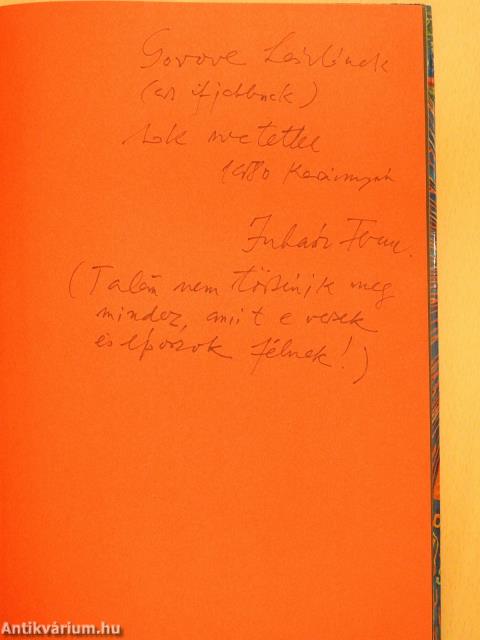 Gorove Lászlónak
(az ifjabbnak)
sok szeretettel
1980 Karácsonyán
Juhász Ferenc.
(Talán nem történik meg
mindez, amit e versek
és eposzok félnek!)
Antikvárium.hu